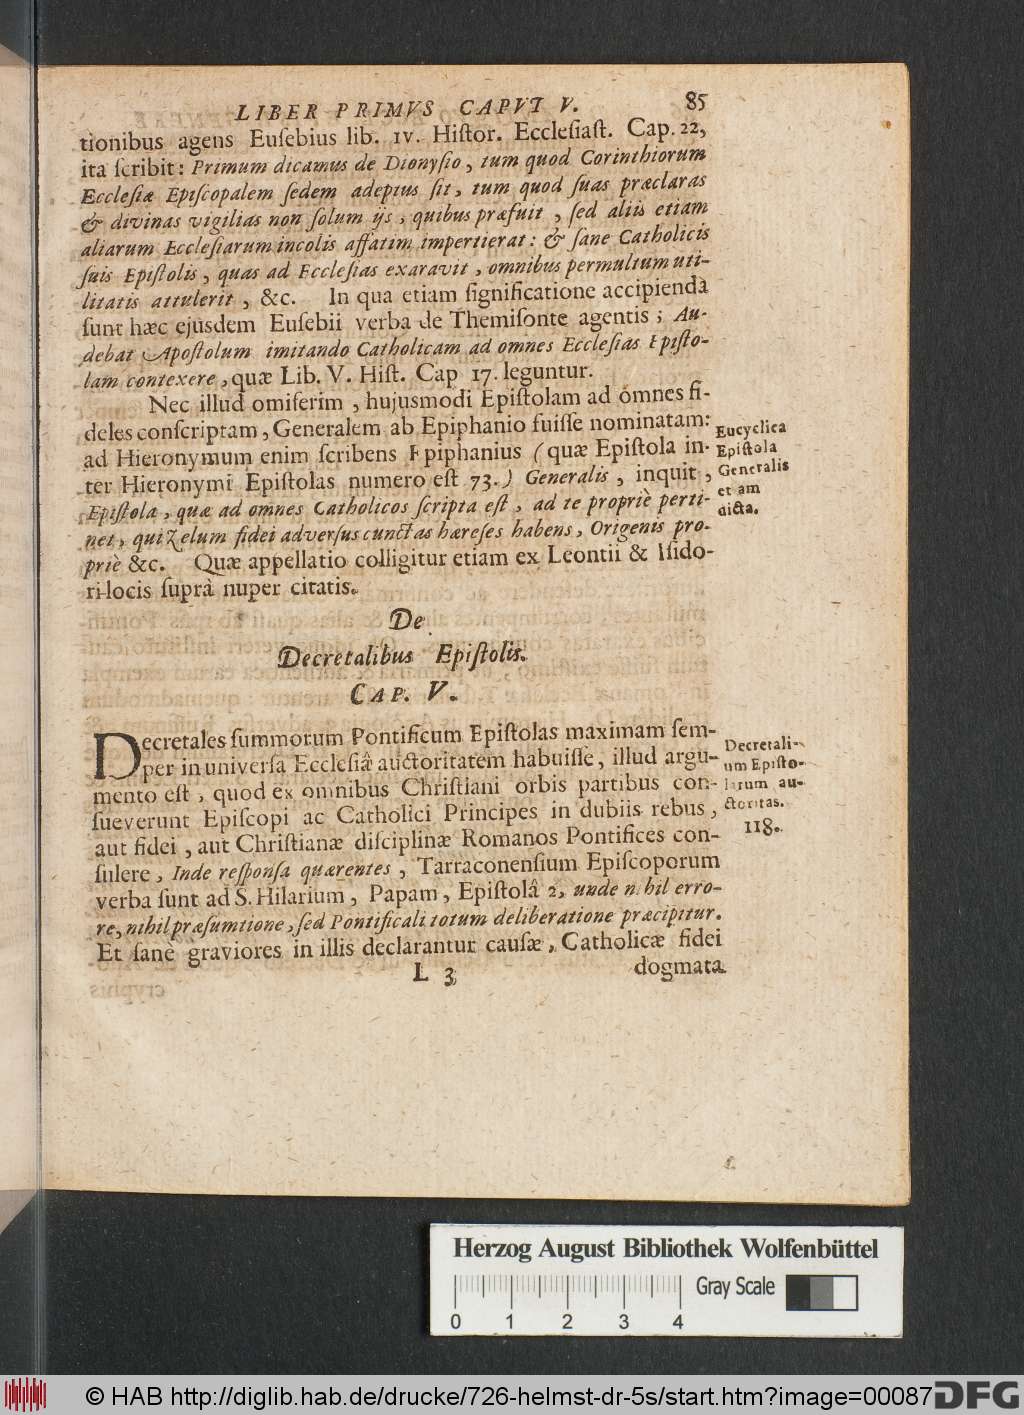 LIBER PRIMVS CAPVT V. 85
tionibus agens Euſebius lib. IV. Hiſtor. Eccleſiaſt. Cap. 22,
ita ſcribit: Primum dicamus de Dionyſio, tum quod Corinthiorum
Eccleſiæ Epiſcopalem ſedem adeptus ſit, tum quod ſuas præclaras
& divinas vigilias non ſolum ijs, quibus præfuit, ſed aliis etiam
aliarum Eccleſiarum incolis affatim impertierat: & ſane Catholicis
ſuis Epiſtolis, quas ad Eccleſias exaravit, omnibus permultum uti-
litatis attulerit, &c. In qua etiam ſignificatione accipienda
ſunt hæc ejusdem Euſebii verba de Themiſonte agentis; Au-
debat Apoſtolum imitando Catholicam ad omnes Eccleſias Epiſto-
lam contexere, quæ Lib. V. Hiſt. Cap 17. leguntur.
Nec illud omiſerim, hujusmodi Epiſtolam ad omnes fi-
deles conſcriptam, Generalem ab Epiphanio fuiſſe nominatam:
ad Hieronymum enim ſcribens Epiphanius (quæ Epiſtola in-
ter Hieronymi Epiſtolas numero eſt 73.) Generalis, inquit,
Epiſtola, quæ ad omnes Catholicos ſcripta eſt, ad te propriè perti-
net, qui Zelum fidei adverſus cunctas hæreſes habens, Origenis pro-
priè &c. Quæ appellatio colligitur etiam ex Leontii & Iſido-
ri locis ſuprâ nuper citatis.
Eucyclica
Epiſtola
Generalis
et am
dicta.
De
Decretalibus Epiſtolis.
CAP. V.
Decretales ſummorum Pontificum Epiſtolas maximam ſem-
per in univerſa Eccleſiâ auctoritatem habuiſſe, illud argu-
mento eſt, quod ex omnibus Chriſtiani orbis partibus con-
ſueverunt Epiſcopi ac Catholici Principes in dubiis rebus,
aut fidei, aut Chriſtianæ diſciplinæ Romanos Pontifices con-
ſulere, Inde reſponſa quærentes, Tarraconenſium Epiſcoporum
verba ſunt ad S. Hilarium, Papam, Epiſtolâ 2, unde nihil erro-
re, nihil præſumtione, ſed Pontificali totum deliberatione præcipitur.
Et ſanè graviores in illis declarantur cauſæ, Catholicæ fidei
Decretali-
um Epiſto-
larum au-
ctoritas.
118.
L 3 dogmata
Herzog August Bibliothek Wolfenbüttel
Gray Scale
0 1 2 3 4
© HAB http://diglib.hab.de/drucke/726-helmst-dr-5s/start.htm?image=00087
DFG